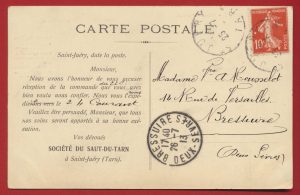 CARTE POSTALE
Saint-Juéry, date la poste.
Monsieur,
Nous avons l'honneur de vous accuser
réception de la commande que vous avez
bien voulu nous confier. Nous vous l'expé-
24 Courant
Veuillez être persuadé, Monsieur, que tous
nos soins seront apportés à sa bonne exé-
cution.
Vos dévoués
SOCIÉTÉ DU SAUT-DU-TARN
à Saint-Juéry (Tarn).
10
Madame Vve A Rousselot
14 Rue de Versailles
Bressuire
(Deux Sèvres)
BRESSUIRE
DEUX-SEVRES
17 40
26 -7
13